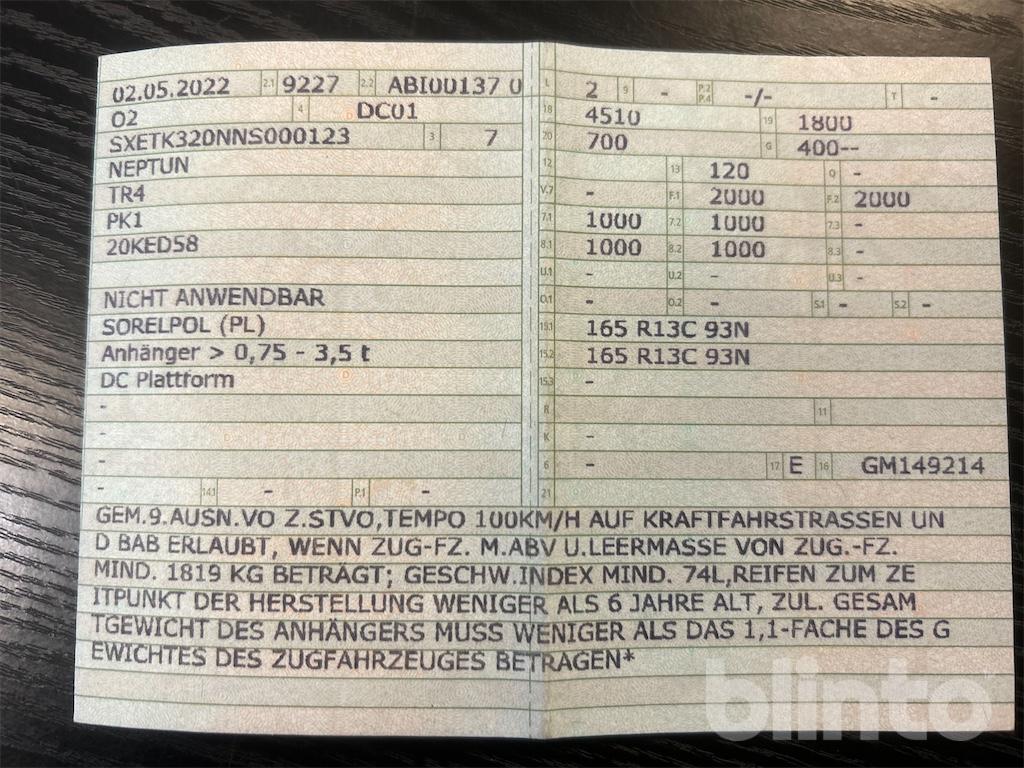 02.05.2022 2.1 9227 2.2 ABI00137 0 L 2 9 - P.2 P.4 -/- T -
O2 4 DC01 18 4510 19 1800
SXETK320NNS000123 3 7 20 700 G 400--
NEPTUN 12 13 120 Q -
TR4 V.7 - F.1 2000 F.2 2000
PK1 7.1 1000 7.2 1000 7.3 -
20KED58 8.1 1000 8.2 1000 8.3 -
U.1 - U.2 - U.3 -
NICHT ANWENDBAR O.1 - O.2 - S.1 - S.2 -
SORELPOL (PL) 15.1 165 R13C 93N
Anhänger > 0,75 - 3,5 t 15.2 165 R13C 93N
DC Plattform 15.3 -
- R 11
- K -
- 6 - 17 E 16 GM149214
- 14.1 - P.1 - 21
GEM.9.AUSN.VO Z.STVO,TEMPO 100KM/H AUF KRAFTFAHRSTRASSEN UN
D BAB ERLAUBT, WENN ZUG-FZ. M.ABV U.LEERMASSE VON ZUG.-FZ.
MIND. 1819 KG BETRÄGT; GESCHW.INDEX MIND. 74L,REIFEN ZUM ZE
ITPUNKT DER HERSTELLUNG WENIGER ALS 6 JAHRE ALT, ZUL. GESAM
TGEWICHT DES ANHÄNGERS MUSS WENIGER ALS DAS 1,1-FACHE DES G
EWICHTES DES ZUGFAHRZEUGES BETRAGEN*
blinto